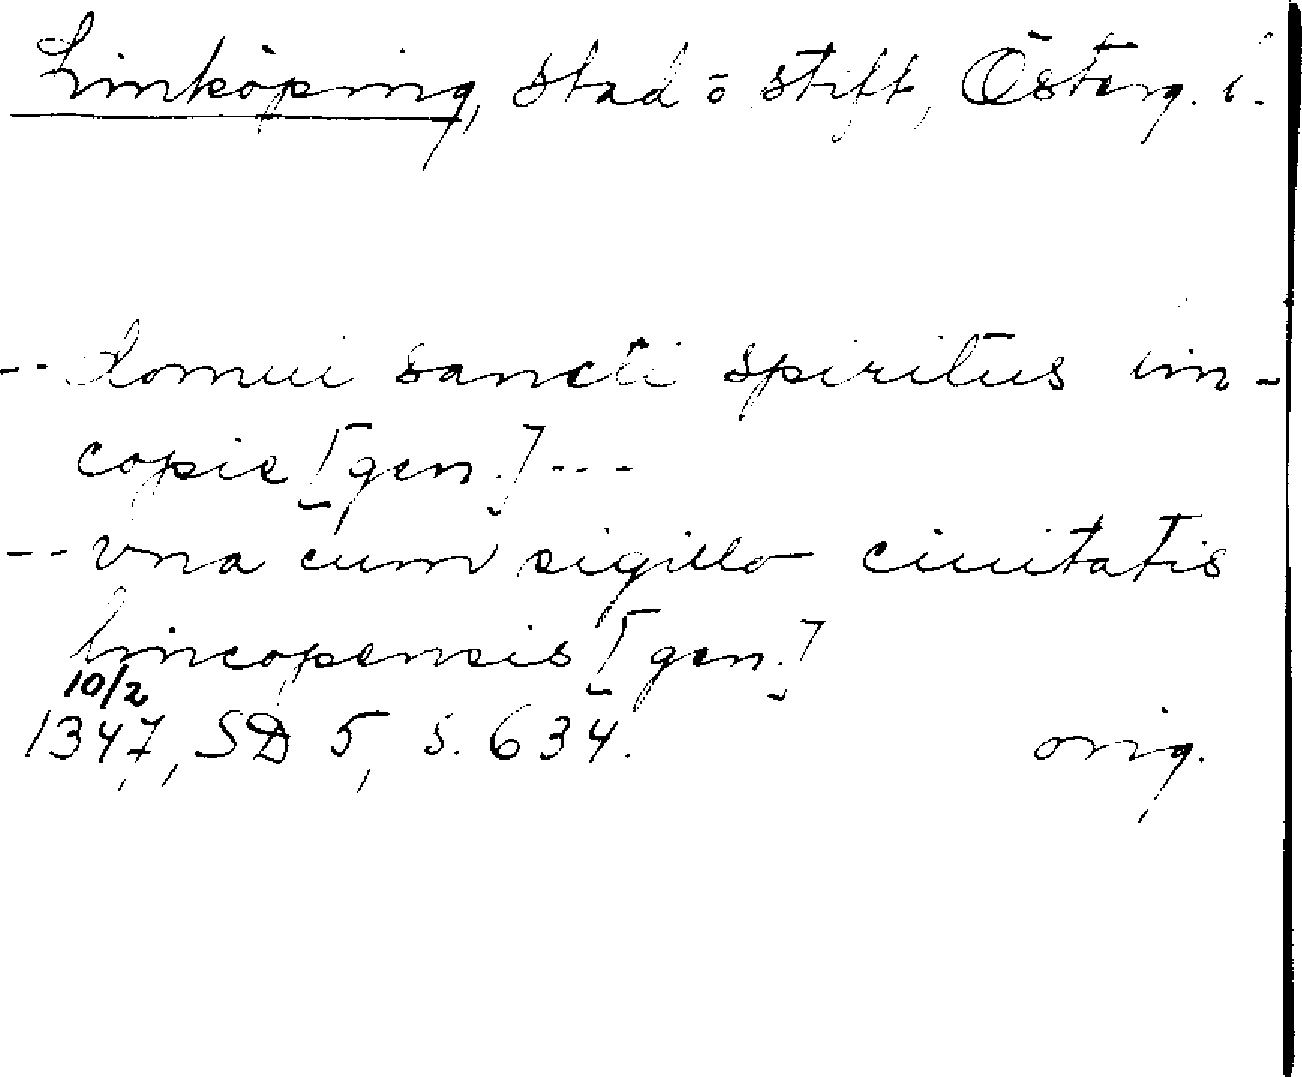 Linköping, stad o stift, Österg. l.
-- domui sancti spiritus lin-
copie [gen.] ---
-- vna cum sigillo ciuitatis
lincopensis [gen.]
10/2
1347, SD 5, s. 634. orig.